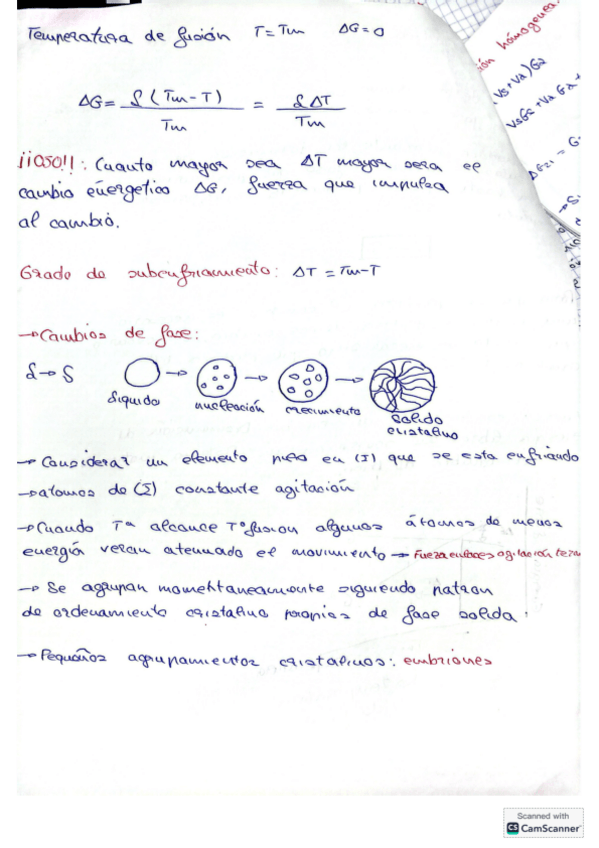 Temperatura de fusión T = Tm ΔG = 0
ΔG = L (Tm - T) / Tm = L ΔT / Tm
¡¡OJO!!: Cuanto mayor sea ΔT mayor sera el
cambio energetico ΔG, fuerza que impulsa
al cambio.
Grado de subenfriamiento: ΔT = Tm - T
→ Cambios de fase:
L → S
liquido nucleación crecimiento solido
cristalino
→ Considerar un elemento puro en (L) que se esta enfriando
→ atomos de (L) constante agitación
→ Cuando Tª alcance Tª fusion algunos átomos de menos
energía veran atenuado el movimiento → Fuerza enlaces agitación
→ Se agrupan momentaneamente siguiendo patron
de ordenamiento cristalino propios de fase solida.
→ Pequeños agrupamientos cristalinos: embriones
homogenea.
Scanned with
CS CamScanner